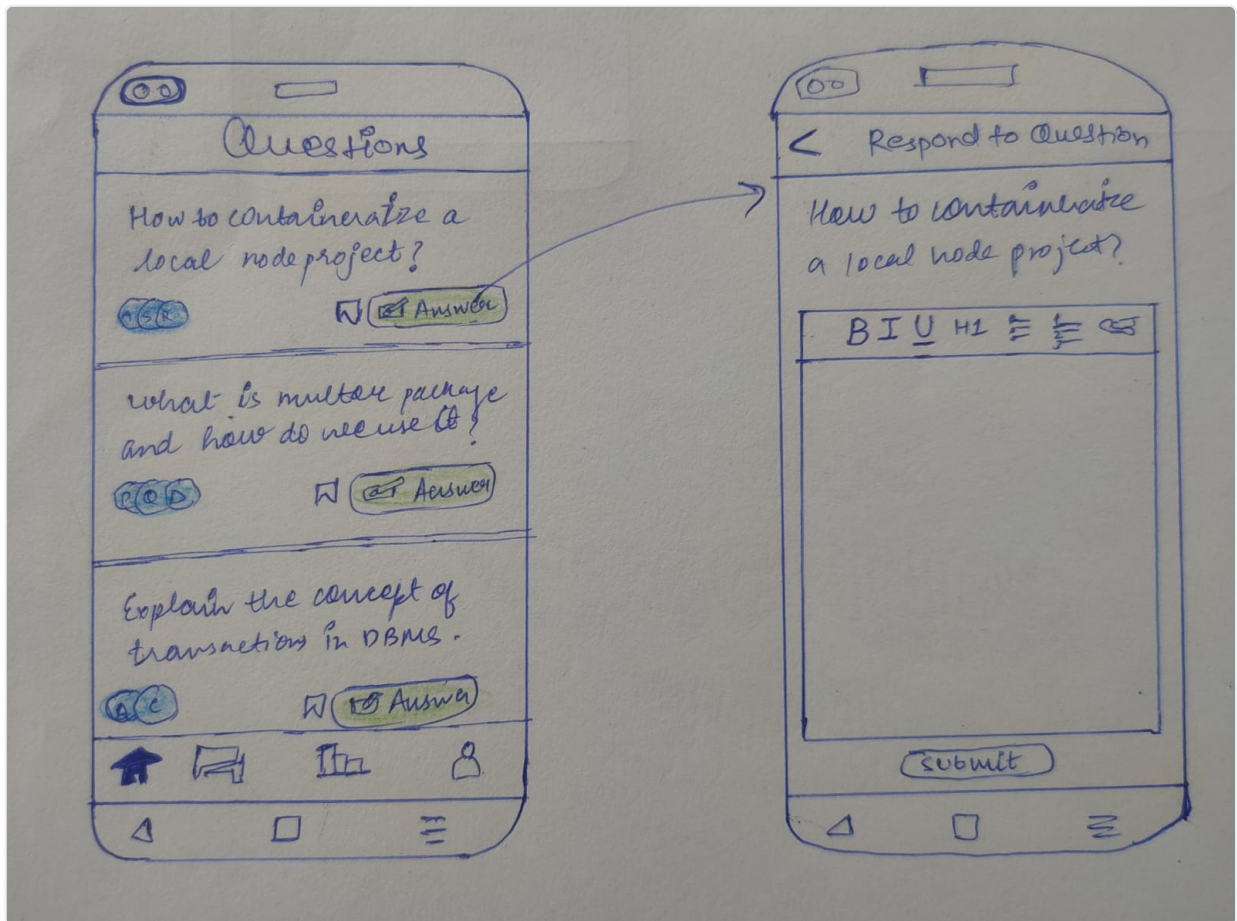 Questions
How to containeratize a
local node project?
A S R
Answer
What is multer package
and how do we use it?
P Q D
Answer
Explain the concept of
transactions in DBMS.
A C
Answer
Respond to Question
How to containeratize
a local node project?
B I U H1
submit